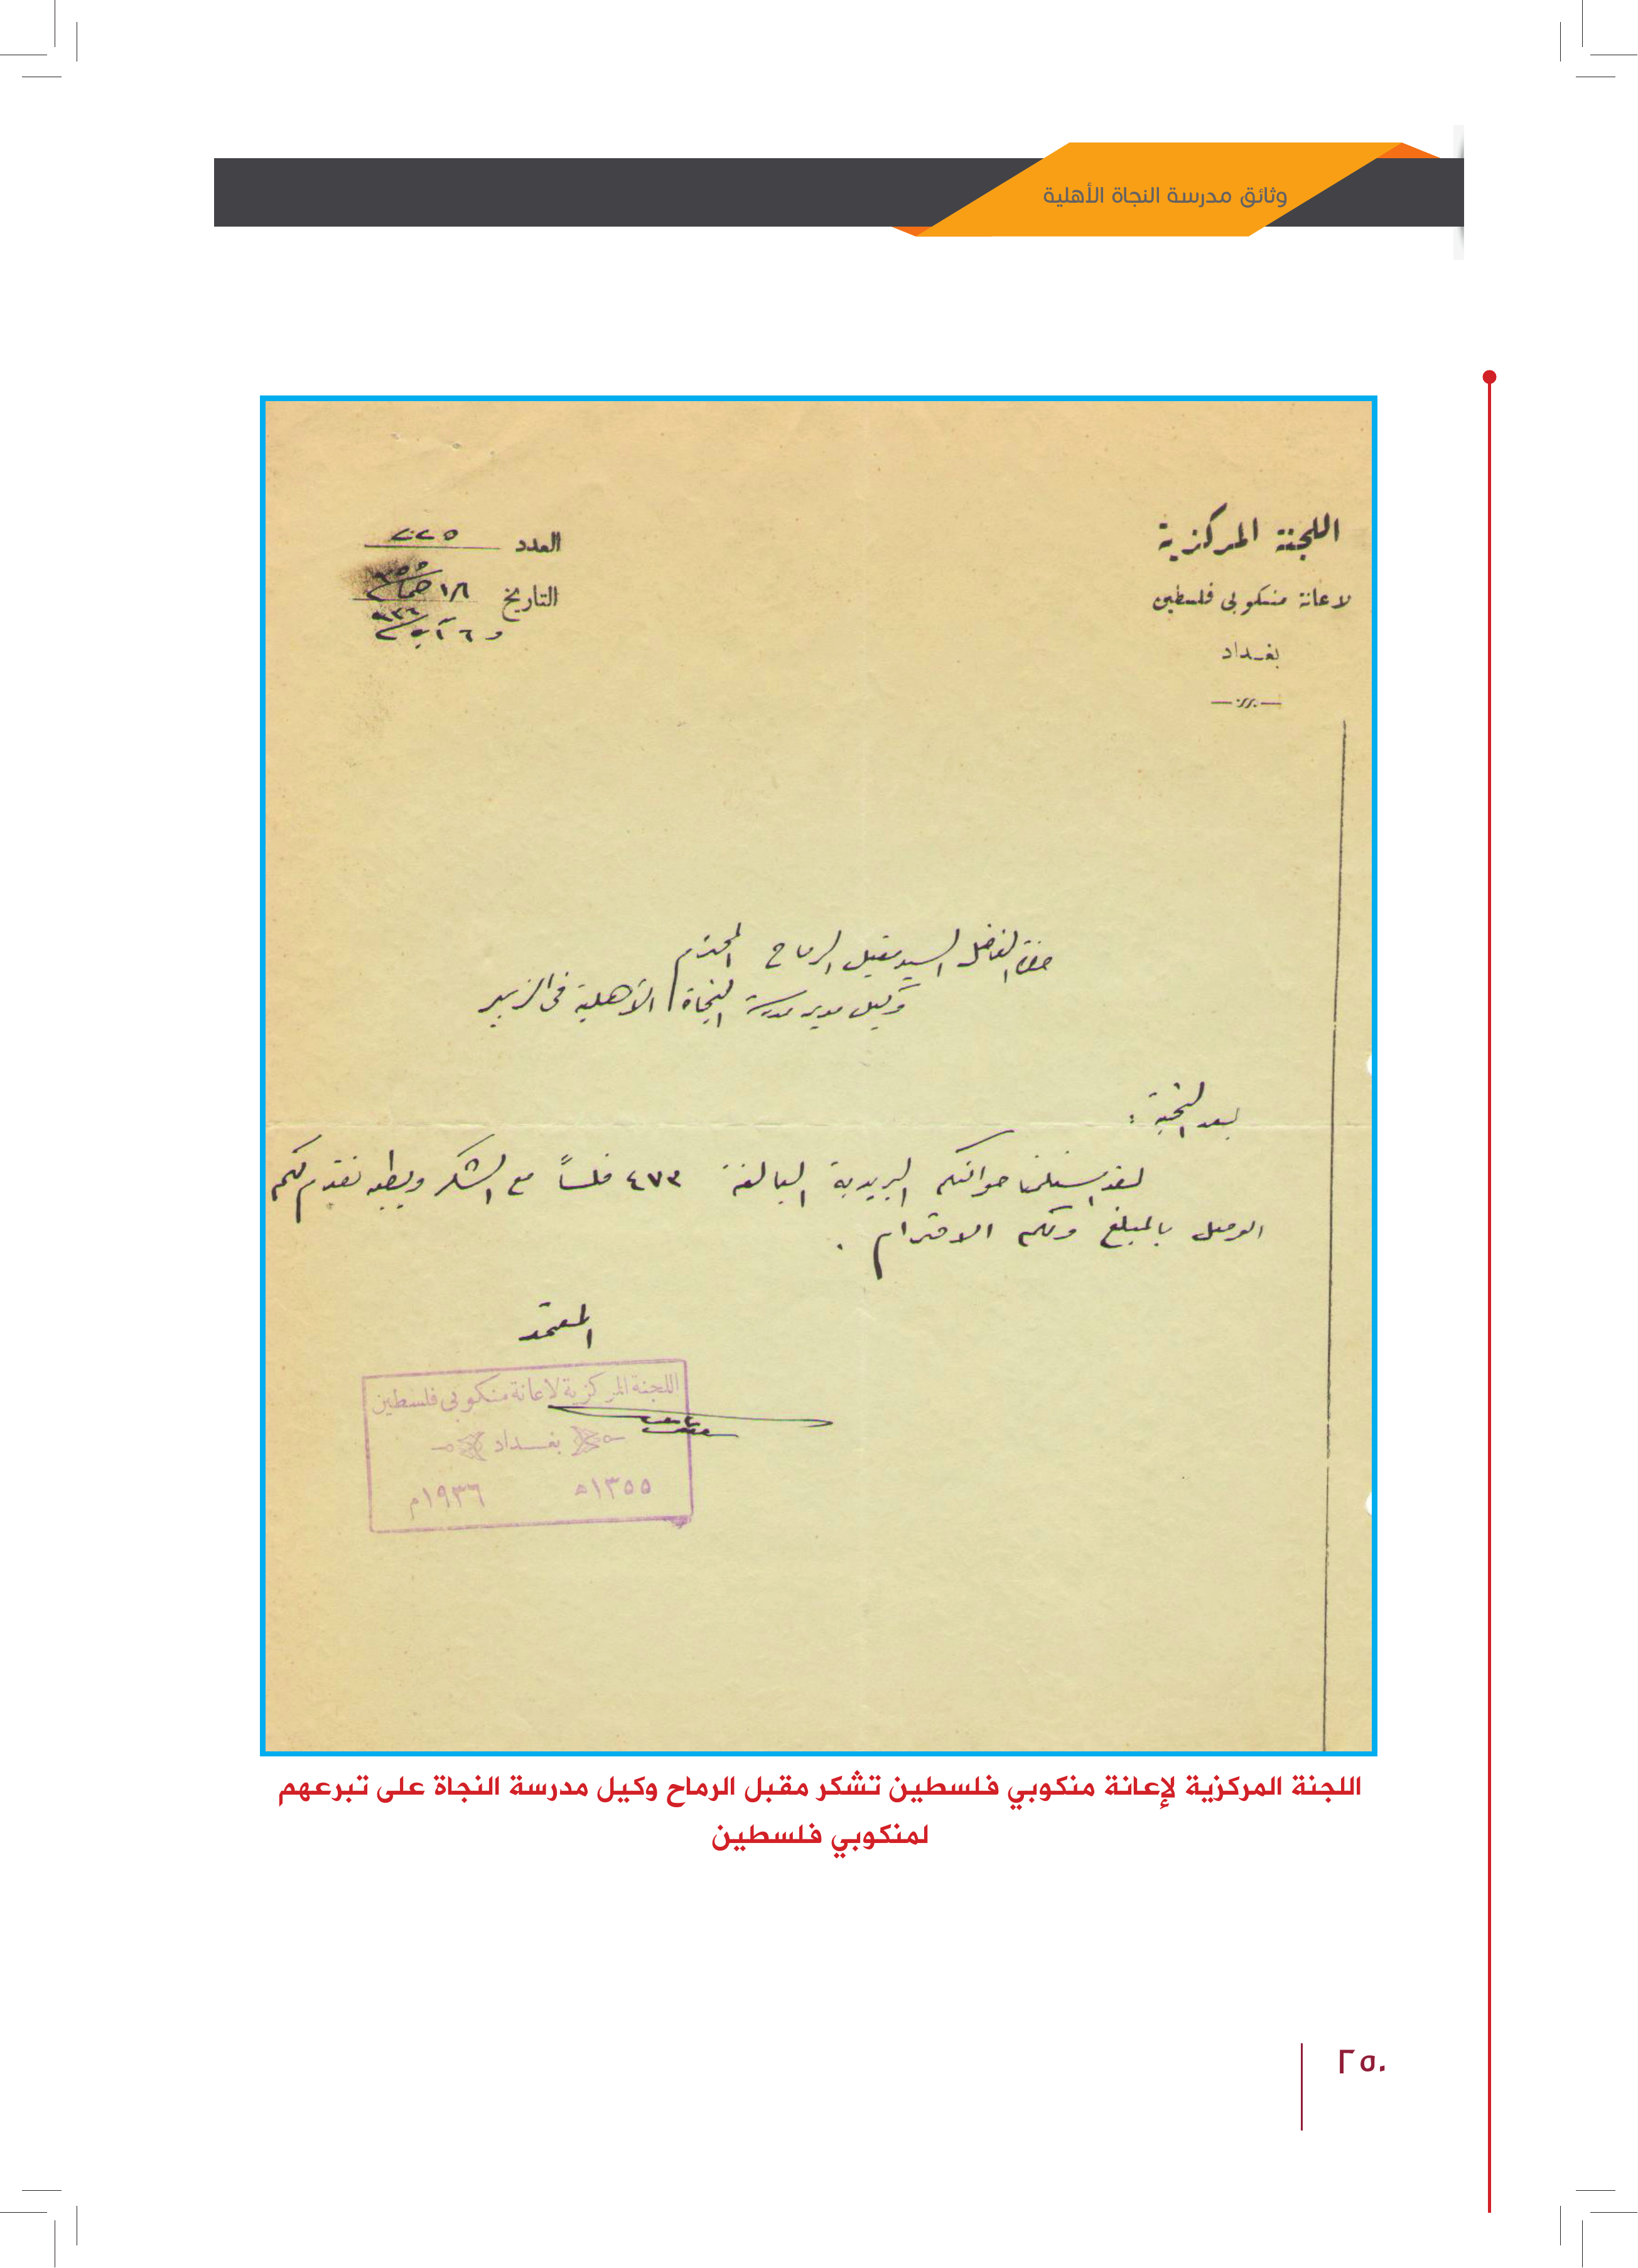 وثائق مدرسة النجاة الأهلية
اللجنة المركزية
لاعانة منكوبي فلسطين
بغداد
العدد
التاريخ ١٨ جما ٣٥٥
و ٦ آب ٩٣٦
حضرة الفاضل السيد مقبل الرماح المحترم
وكيل مدير مدرسة النجاة الأهلية في الزبير
بعد التحية :
لقد استلمنا حوالتكم البريدية البالغة ٤٧٣ فلساً مع الشكر وبطيه نقدم لكم
الوصل بالمبلغ ولكم الاحترام .
المعتمد
اللجنة المركزية لاعانة منكوبي فلسطين
بغداد
١٣٥٥ه ١٩٣٦م
اللجنة المركزية لإعانة منكوبي فلسطين تشكر مقبل الرماح وكيل مدرسة النجاة على تبرعهم
لمنكوبي فلسطين
٢٥٠